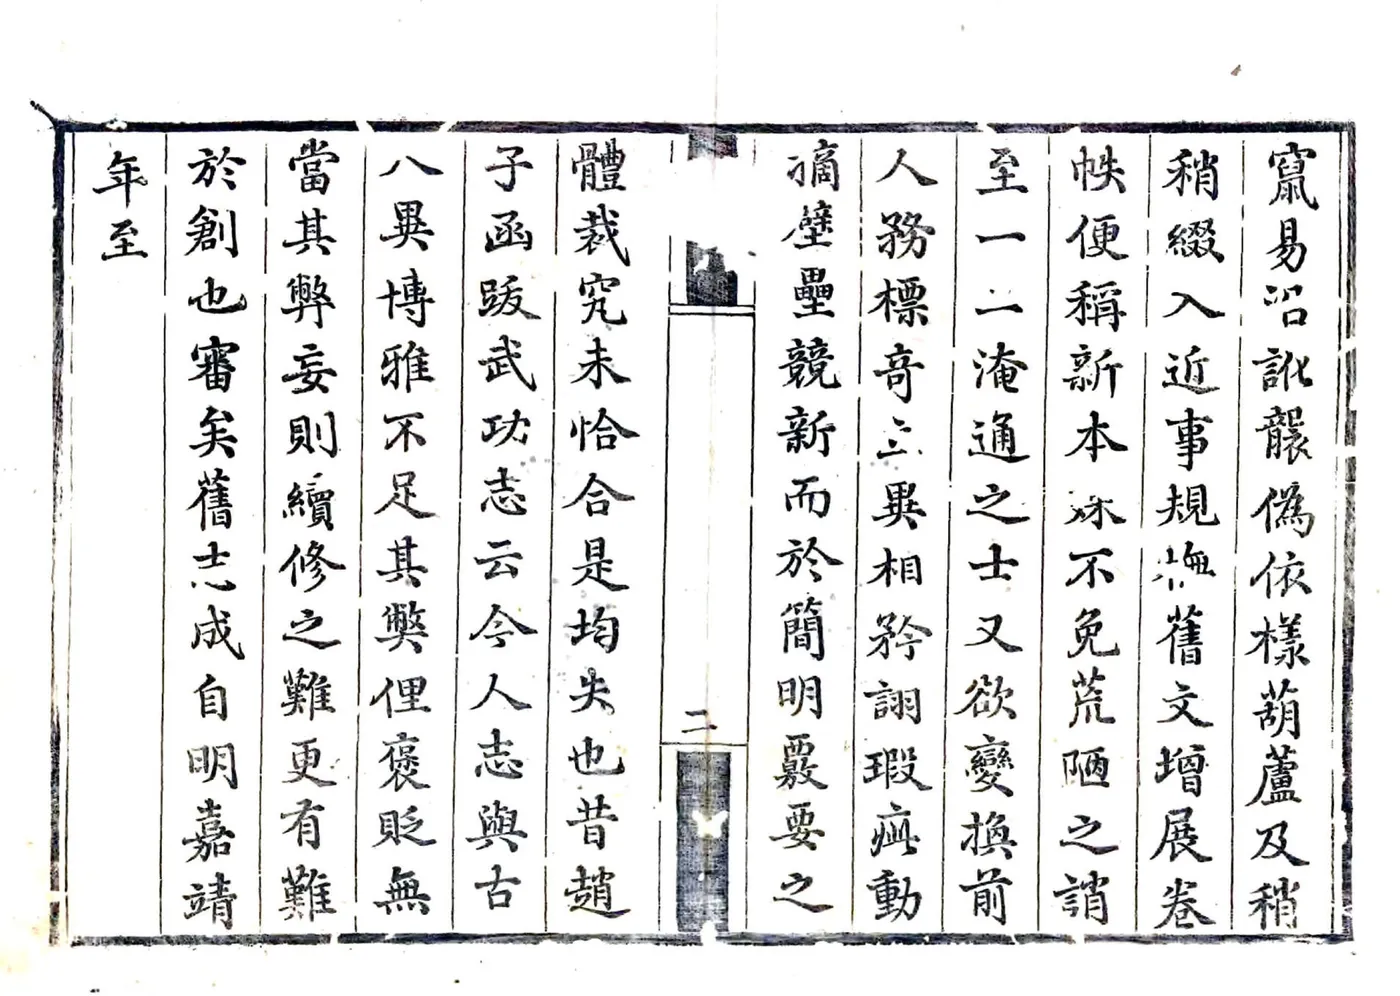 竄易沿訛襲僞依樣葫蘆及稍
稍綴入近事規撫舊文增展卷
帙便稱新本殊不免荒陋之誚
至一二淹通之士又欲變換前
人務標奇立異相矜詡瑕疵動
摘壁壘競新而於簡明覈要之
二
體裁究未恰合是均失也昔趙
子函跋武功志云今人志與古
八異博雅不足其獘俚褒貶無
當其弊妄則續修之難更有難
於創也審矣舊志成自明嘉靖
年至